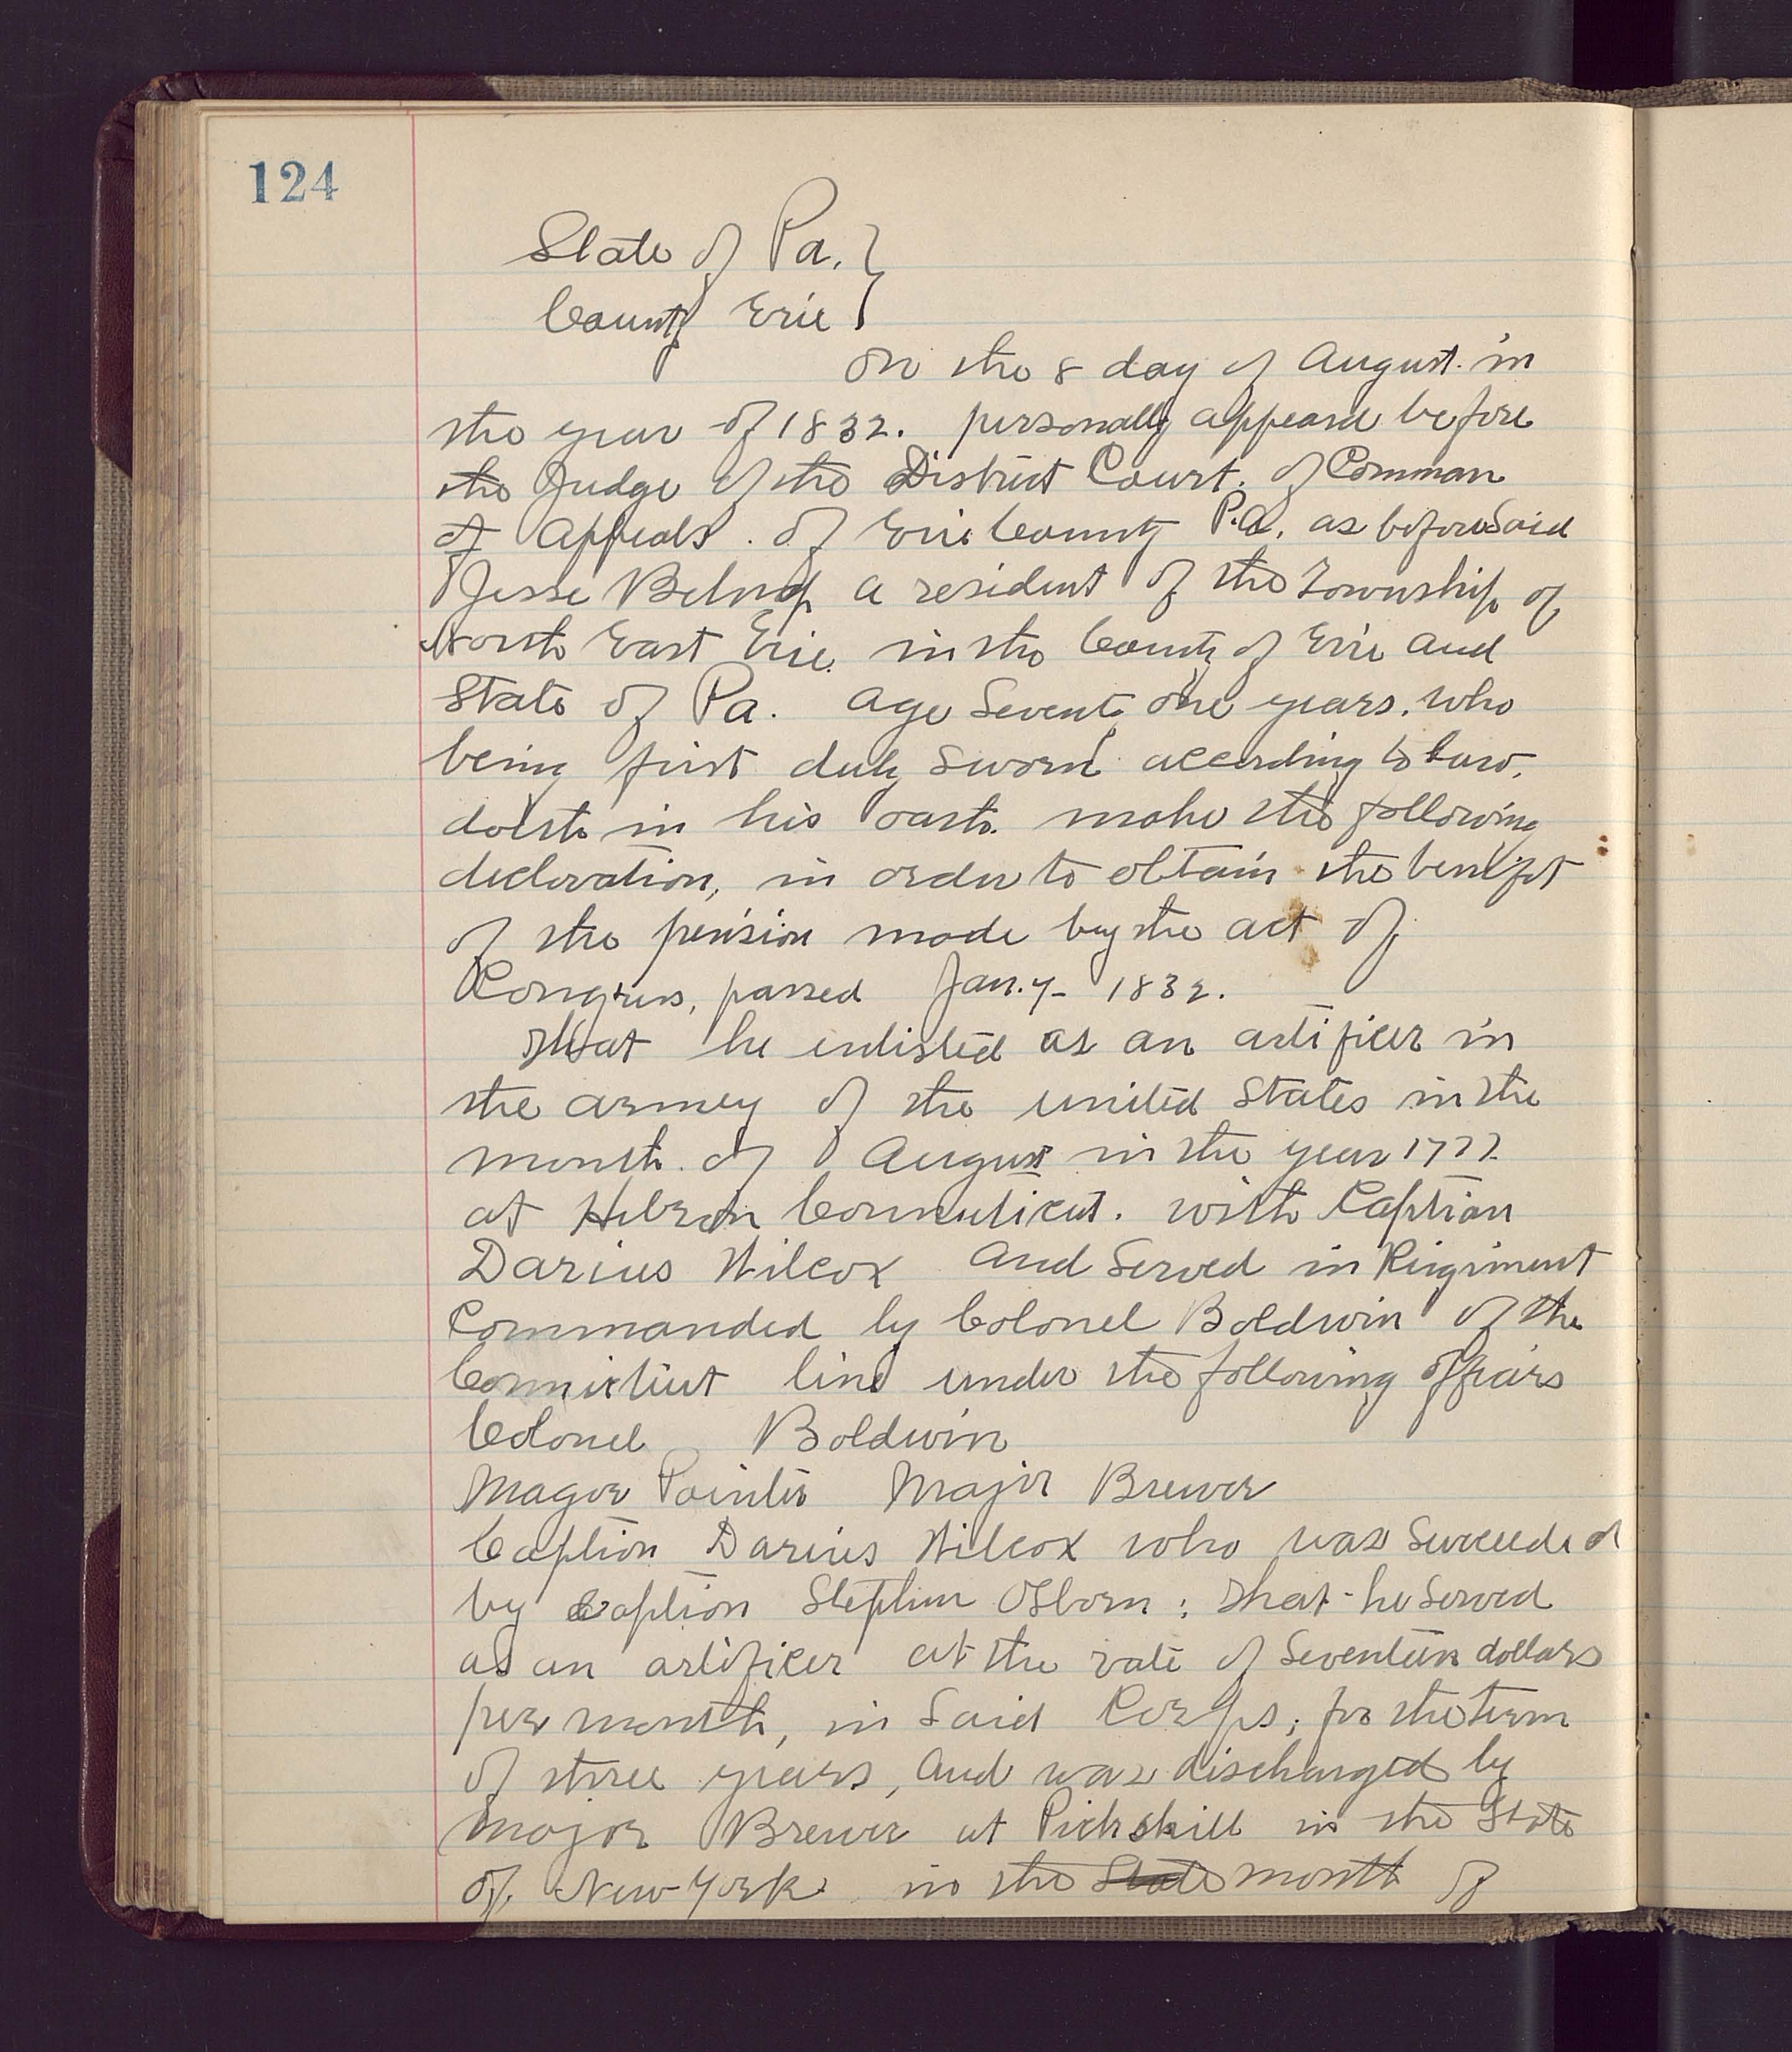 124
State of Pa. }
County Erie }
On the 8 day of August. in
the year of 1832. personally appeard before
the Judge of the District Court. of Comman
of Appeals. of Erie County P.a. as before Said
Jesse Belnap a resident of the Township of
North East Erie. in the County of Erie and
State of Pa. age Seventy one years. who
being first duly Sworn according to Law.
doeth in his oath. make the following
decloration, in order to obtain the benifit
of the pension made by the act of
Congress, passed Jan. 7- 1832.
That he enlisted as an artificer in
the armey of the united States in the
month. of August in the year 1777
at Hebron Connecticut. with Caption
Darius Wilcox and Served in Regiment
Commanded by Colonel Boldwin of the
Connecticut line under the following officers
Colonel Boldwin
Magor Pointer Major Brewer
Caption Darius Wilcox who was Succeeded
by Caption Stephen Osborn: that-he Served
as an artificer at the rate of Seventeen dollars
per month, in Said Corps; for the term
of three years, and was discharged by
Major Brewer at Pickskill in the State
of New-York. in the State month of